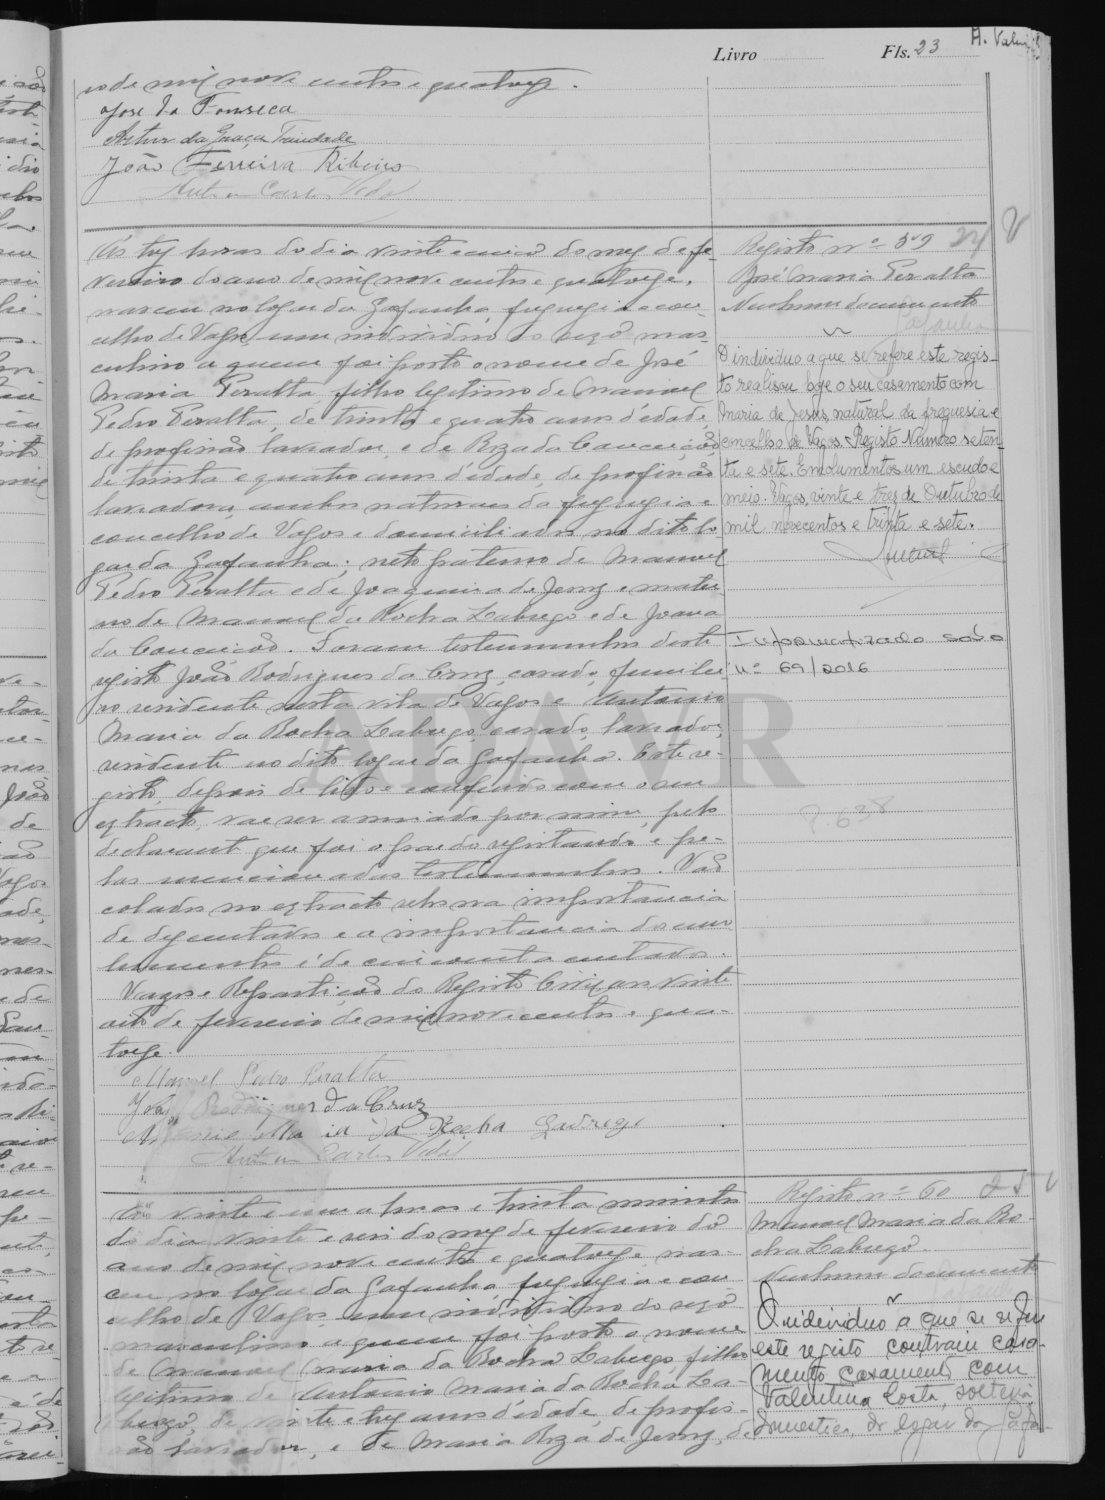 Livro Fls. 23
ro de mil nove centos e quatorze.
José da Fonseca
Artur da Graça Trindade
João Ferreira Ribeiro
Carlos Vidal
Ás tres horas do dia vinte e cinco do mez de fe-
vereiro do ano de mil nove centos e quatorze,
nasceu no logar da Gafanha, freguezia e con-
celho de Vagos, um individuo do sexo mas-
culino a quem foi posto o nome de José
Maria Peralta, filho legitimo de Manuel
Pedro Peralta, de trinta e quatro anos d'edade,
de profissão lavrador, e de Roza da Conceição,
de trinta e quatro anos d'edade, de profissão
lavradora, ambos naturaes da freguezia e
concelho de Vagos e domiciliados no dito lo-
gar da Gafanha; neto paterno de Manuel
Pedro Peralta e de Joaquina de Jesus e mater
no de Manuel da Rocha Labrego e de Joana
da Conceição. Foram testemunhas deste
registo João Rodrigues da Cruz, casado, funilei
ro residente nesta vila de Vagos e Antonio
Maria da Rocha Labrego, casado, lavrador,
residente no dito logar da Gafanha. Este re-
gisto, depois de lido e conferido com o seu
extracto, vae ser assinado por mim, pelo
declarante que foi o pae do registando e pe-
las mencionadas testemunhas. Vão
colados no extracto selos na importancia
de dez centavos e a importancia dos emo-
lumentos é de cincoenta centavos.
Vagos e Repartição do Registo Civil, aos vinte
oito de fevereiro de mil nove centos e qua-
torze.
Manuel Pedro Peralta
João Rodrigues da Cruz
Antonio Maria da Rocha Labrego
Carlos Vidal
Registo nº 59 24
José Maria Peralta
Nenhum documento
Gafanha
O individuo a que se refere este regis-
to realisou hoje o seu casamento com
Maria de Jesus, natural da freguesia e
concelho de Vagos. Registo Numero seten-
ta e sete. Emolumentos um escudo e
meio. Vagos, vinte e tres de Outubro de
mil novecentos e trinta e sete.
Informatizado sob o
nº 69/2016
ADAVR
P. 638
Ás vinte e uma horas e trinta minutos
do dia vinte e seis do mez de fevereiro do
ano de mil nove centos e quatorze, nas-
ceu no logar da Gafanha, freguezia e con
celho de Vagos, um individuo do sexo
masculino a quem foi posto o nome
de Manuel Maria da Rocha Labrego, filho
legitimo de Antonio Maria da Rocha La-
brego, de vinte e tres anos d'edade, de profis-
são lavrador, e de Maria Roza de Jesus, de
Registo nº 60 25
Manuel Maria da Ro-
cha Labrego.
Nenhum documento
O individuo a que se refere
este registo contraiu casa-
mento casamento com
Valentina Costa, solteira
domestica, do logar da Gafa-